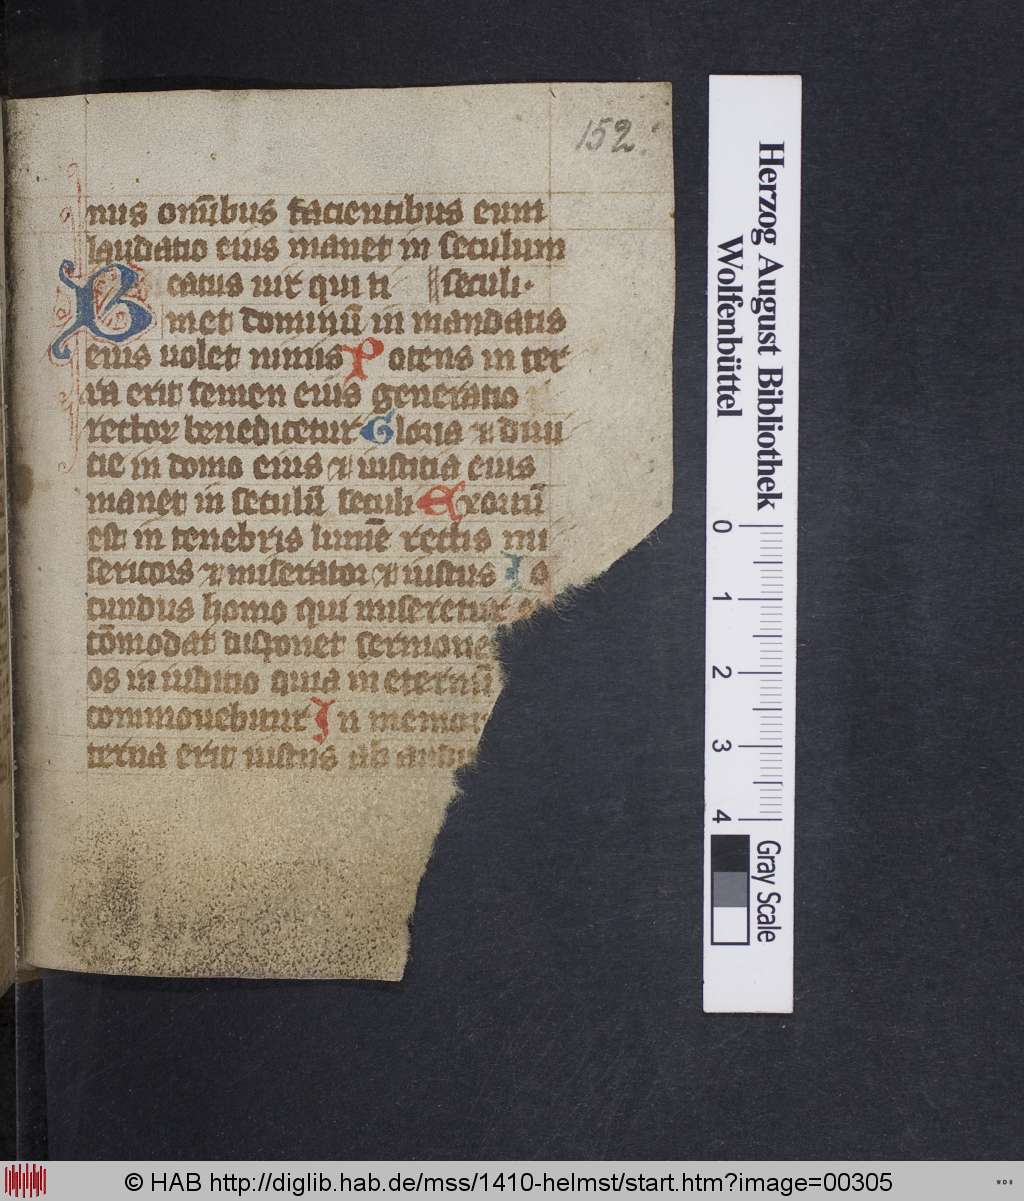 152.
nus om̄ibus facientibus eum
laudatio eius manet in seculum
Beatus uir qui ti seculi.
met dominū in mandatis
eius uolet nimis Potens in ter
ra erit semen eius generatio
rectoꝝ benedicetur Gloria ⁊ diui
tie in domo eius ⁊ iusticia eius
manet in seculū seculi Exortū
est in tenebris lumē rectis mi
sericors ⁊ miserator ⁊ iustus Io
cundus homo qui miseretur
cōmodat disponet sermones
os in iuditio quia in eternū
commouebitur In memor
terna erit iustus ab audi
Herzog August Bibliothek
Wolfenbüttel
0 1 2 3 4
Gray Scale
© HAB http://diglib.hab.de/mss/1410-helmst/start.htm?image=00305